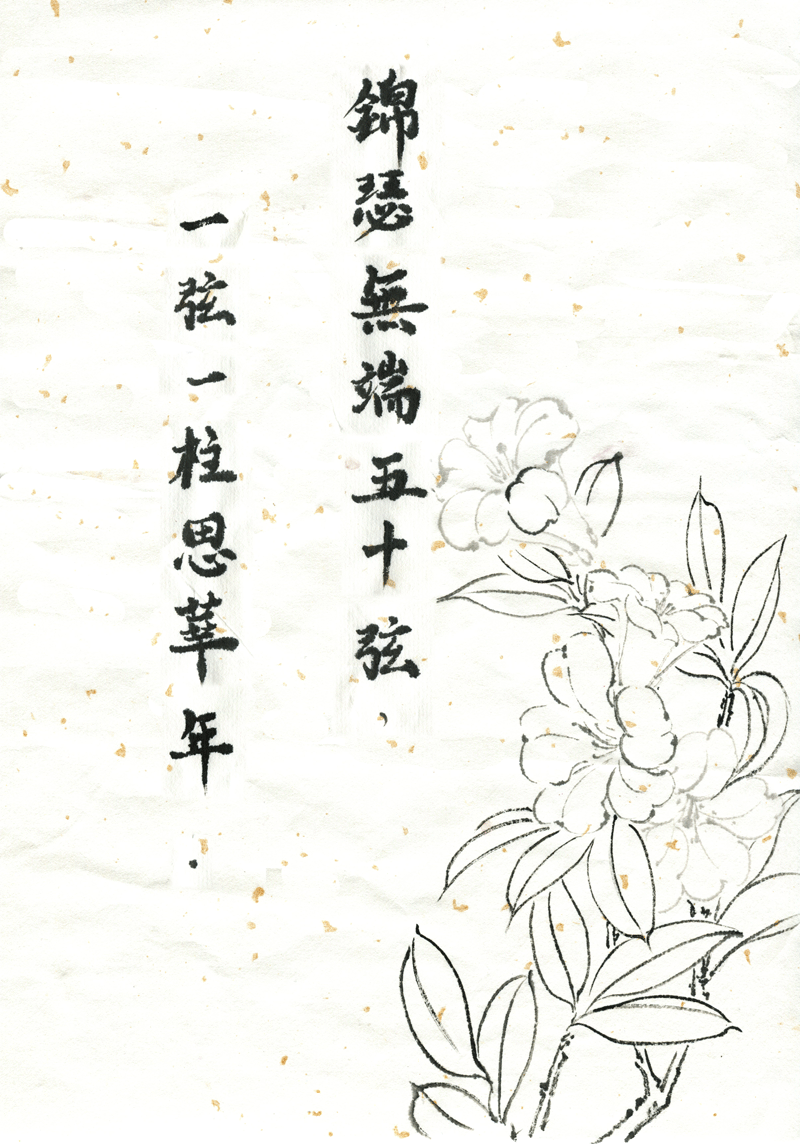 錦瑟無端五十弦，
一弦一柱思華年.